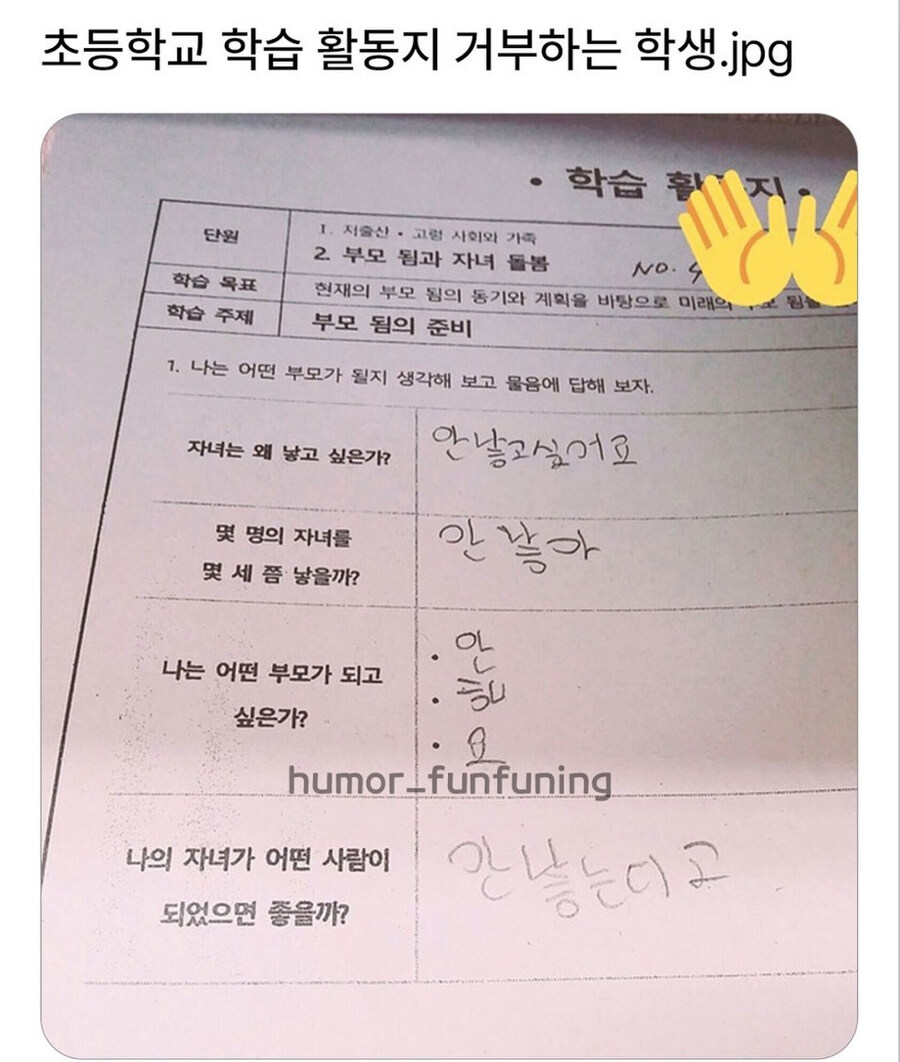 초등학교 학습 활동지 거부하는 학생.jpg
• 학습 활 지 •
단원
Ⅰ. 저출산 • 고령 사회와 가족
2. 부모 됨과 자녀 돌봄
NO.
학습 목표
현재의 부모 됨의 동기와 계획을 바탕으로 미래의
학습 주제
부모 됨의 준비
1. 나는 어떤 부모가 될지 생각해 보고 물음에 답해 보자.
자녀는 왜 낳고 싶은가?
안낳고싶어요
몇 명의 자녀를
몇 세 쯤 낳을까?
안 낳아
나는 어떤 부모가 되고
싶은가?
• 안
• 해
• 요
humor_funfuning
나의 자녀가 어떤 사람이
되었으면 좋을까?
안 낳는다고